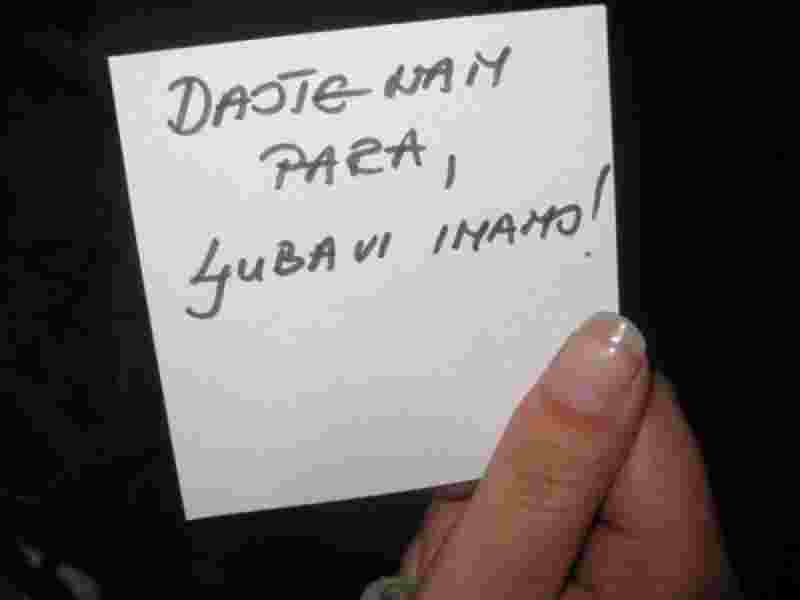 DAJTE NAM
PARA,
LJUBAVI IMAMO!